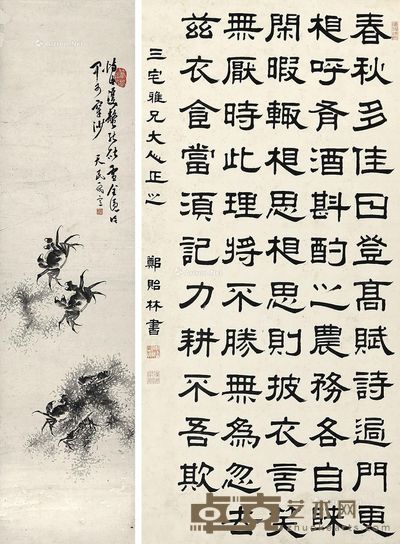 春秋多佳日登高賦詩過門更
相呼有酒斟酌之農務各自歸
閑暇輒相思相思則披衣言笑
無厭時此理將不勝無為忽去
茲衣食當須記力耕不吾欺
三宅雅兄大人正之 鄭貽林書
天民
卓克艺术网